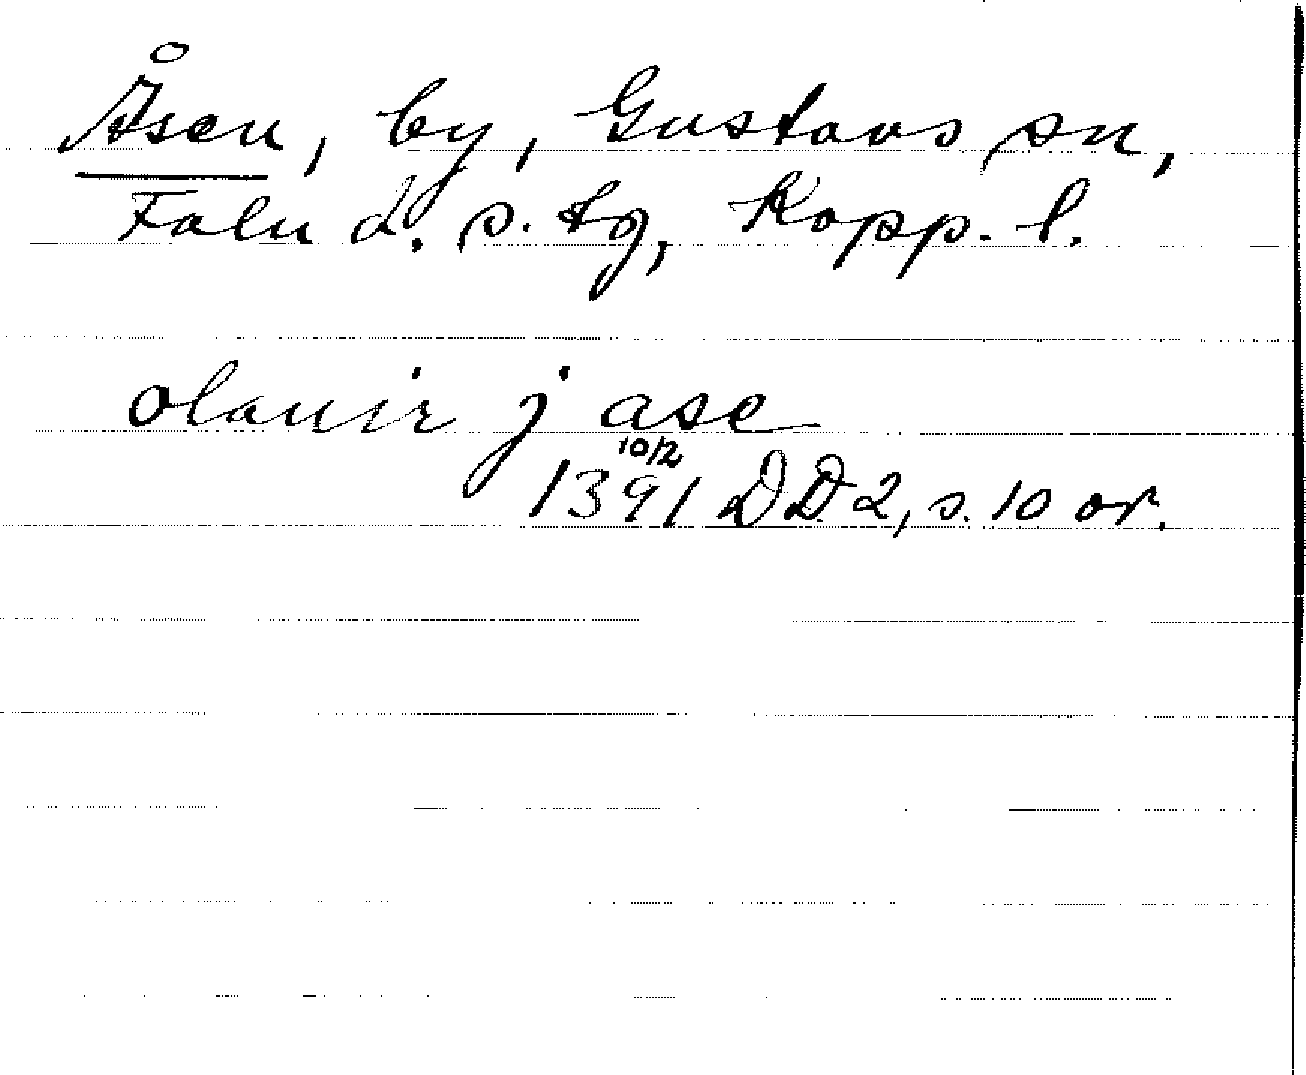 Åsen, by, Gustavs sn,
Falu d. s. tg, Kopp. l.
olauir j ase
10/2
1391 DD 2, s. 10 or.